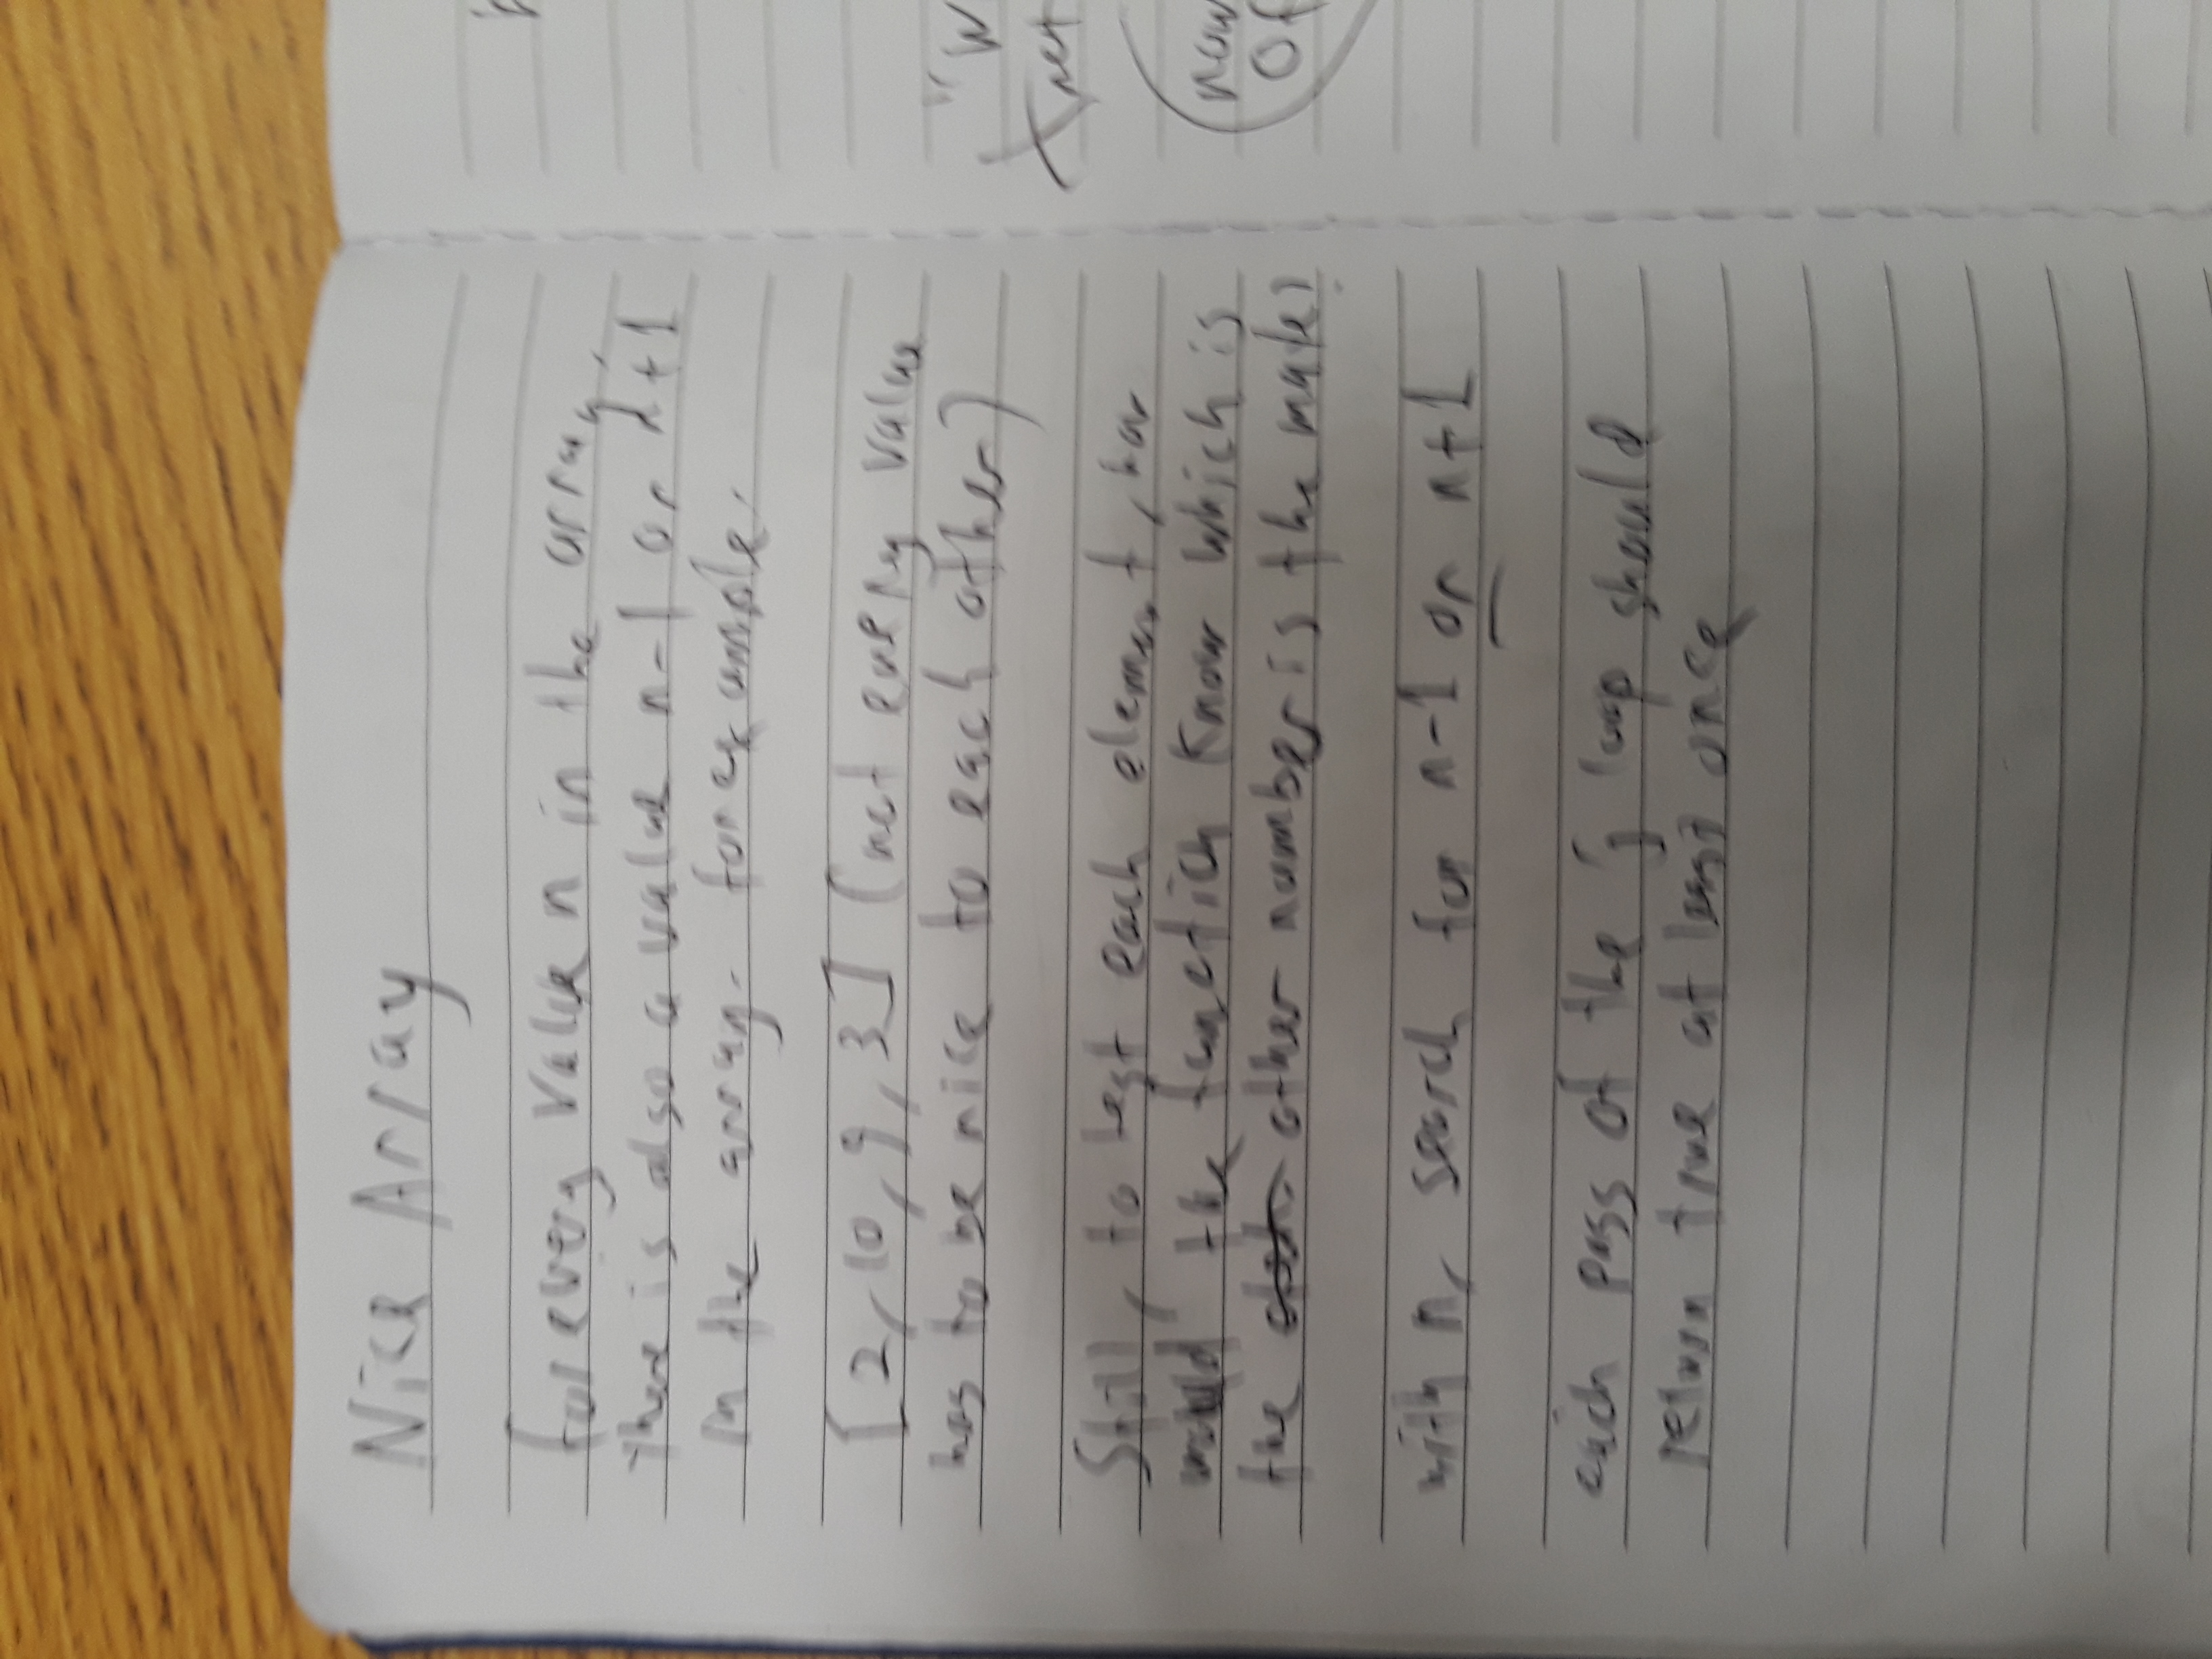 Nice Array
for every value n in the array,
there is also a value n-1 or n+1
in the array. for example.
[2, 10, 9, 3] (not every value
has to be nice to each other)
Still, to test each element, how
would the function know which is
the other number is the mate?
with n, search for n-1 or n+1
each pass of the j loop should
return true at least once
"W
now
Of